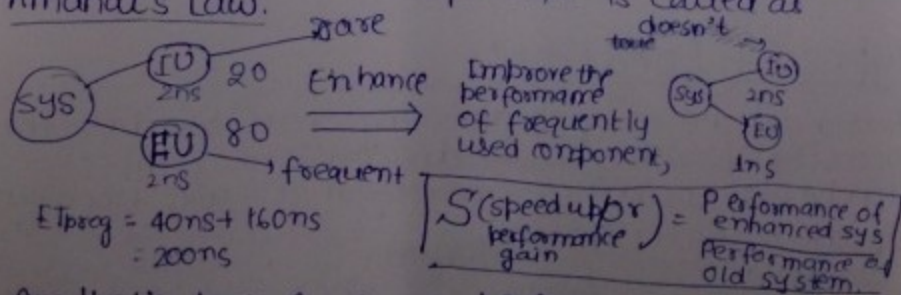 Law.
rare
doesn't
IU 20
2ns
SYS
EU 80
2ns
frequent
Enhance
Improve the
performance
of frequently
used component,
Sys
IU
2ns
EU
1ns
ETprog = 40ns + 160ns
= 200ns
S (speed up or
performance
gain ) = Performance of
enhanced sys
Performance of
old system.